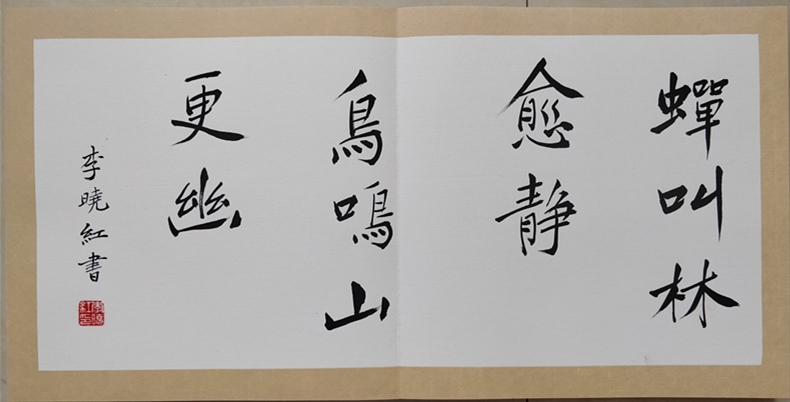 蟬叫林
愈静
鳥鳴山
更幽
李曉紅書